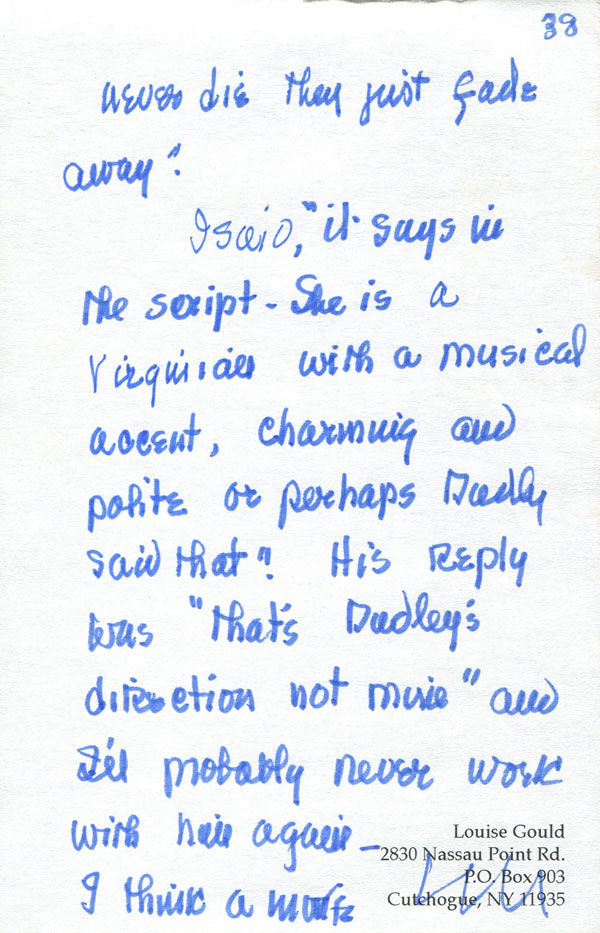 38
never die they just fade
away".
I said, "it says in
the script - She is a
Virginian with a musical
accent, charming and
polite or perhaps Dudly
said that". His reply
was "that's Dudley's
direction not mine" and
I'll probably never work
with him again -
Louise Gould
2830 Nassau Point Rd.
P.O. Box 903
Cutchogue, NY 11935
I think a more